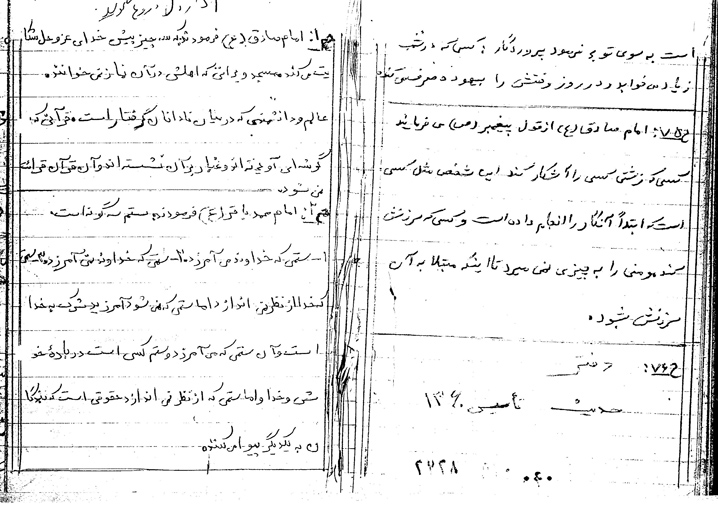 است به سوی تو بر نمی‌شود پروردگار : کسی که در شب
زیاد می‌خوابد و در روز وقتش را بیهوده صرف می‌کند
ح۷۵: امام صادق (ع) از قول پیغمبر (ص) می فرمایند
کسی که زشتی کسی را آشکار کند این شخص مثل کسی
است که ابتدأ آنکار را انجام داده است و کسی که سرزنش
کند مومنی را به چیزی نمی میرد تا اینکه مبتلا به آن
سرزنش شود.
ح۷۶:
حدیث تأسیس ۱۳۶۰
ح۱: امام صادق (ع) فرموده که سه چیز پیش خدای عز و جل شکا
یت می‌کند مسجد ویرانی که اهلش در آن نماز نمی خوانند
عالم و دانشمندی که در میان نادانان گرفتار است. قرآنی که
گوشه‌ای آویخته‌اند و غبار بر آن نشسته اند و آن قرآن قرائت
نمی شود
ح۲: امام محمد باقر (ع) فرمودند ستم سه گونه است.
۱- ستمی که خداوند می آمرزد ۲- ستمی که خداوند نمی آمرزد ۳- ستمی
که خدا از نظر نمی اندازد اما ستمی که نمی شود آمرزید شرک به خدا
است و آن ستمی که می آمرزد ستم کسی است در بارهٔ خو
دش و خدا و اما ستمی که از نظر نمی اندازد حقوقی است که بندگا
ن به یکدیگر پیدا می‌کنند.